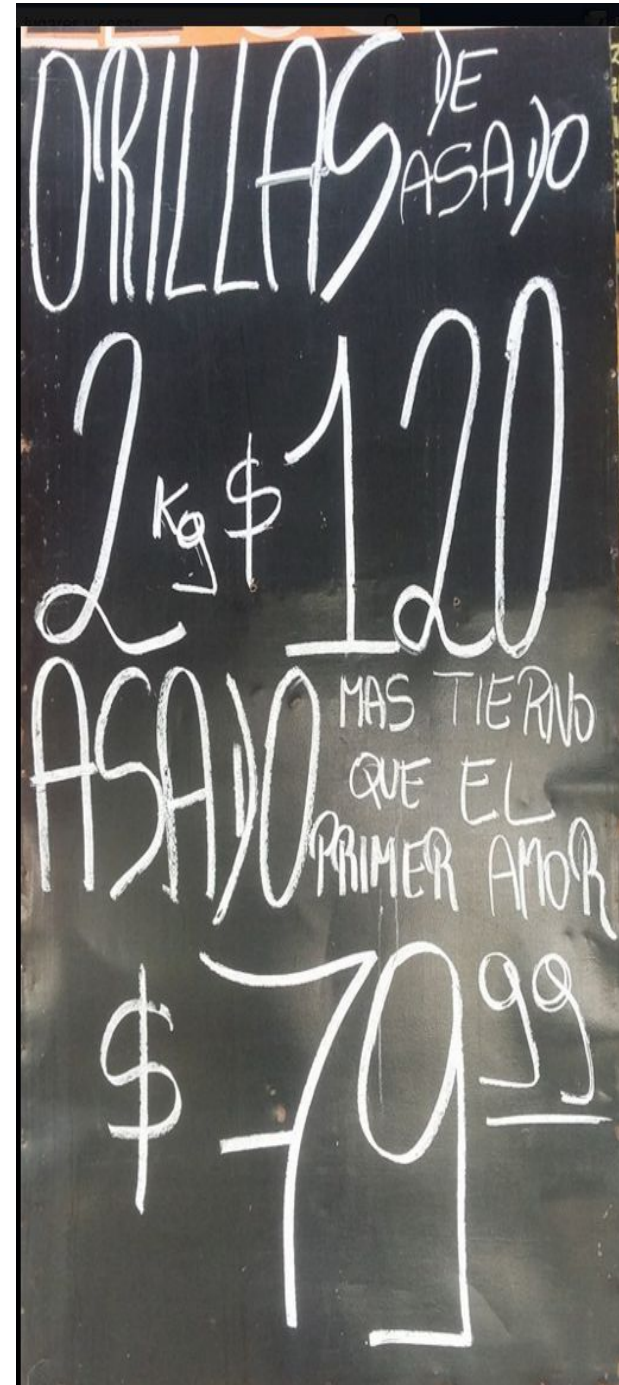 ORILLAS DE
ASADO
2 Kg $ 120
ASADO MAS TIERNO
QUE EL
PRIMER AMOR
$ 79 99